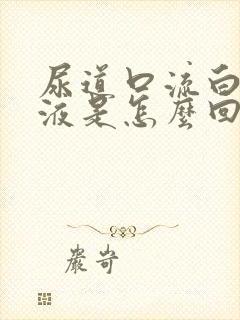 尿道口流白
液是怎麼回
嚴岢